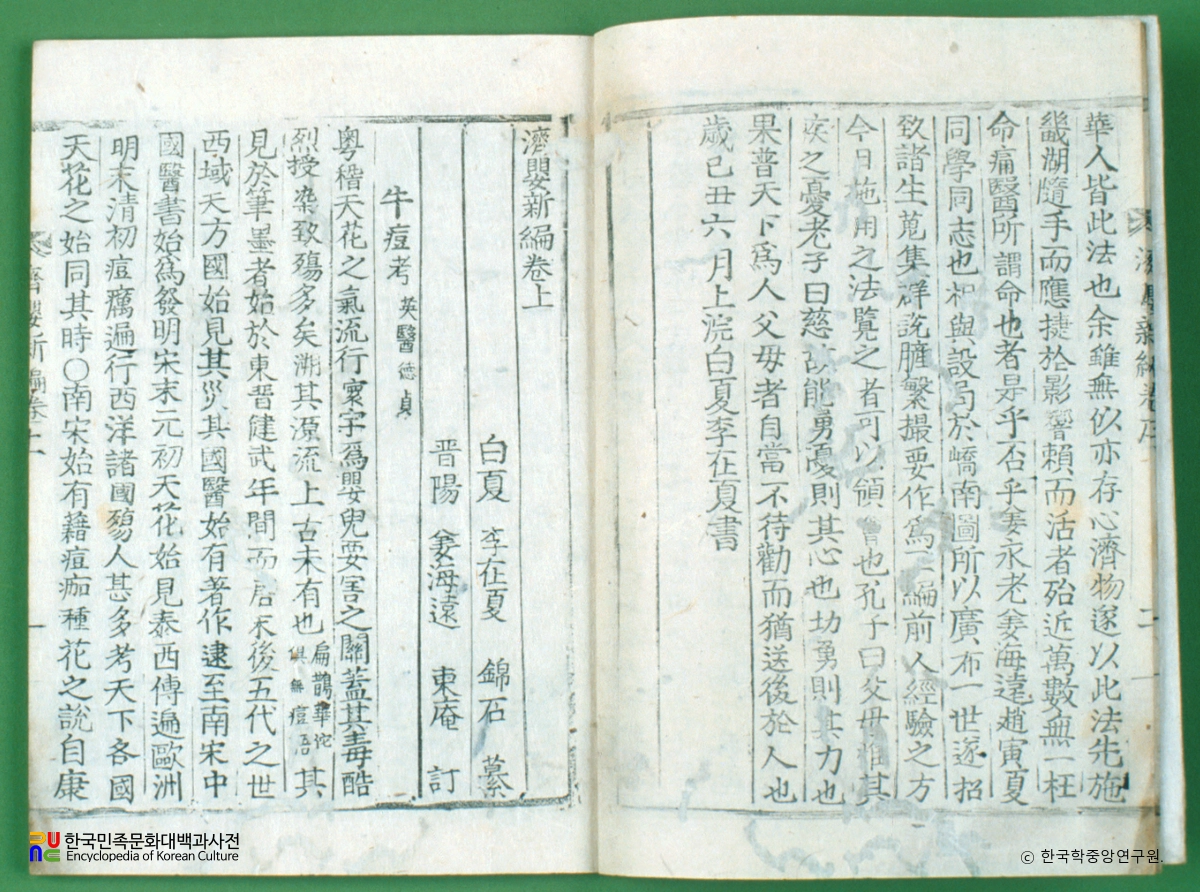 華人皆此法也余雖無似亦存心濟物遂以此法先施
畿湖隨手而應捷於影響賴而活者殆近萬數無一枉
命痛醫所謂命也者是乎否乎姜永老姜海遠趙寅夏
同學同志也相與設局於嶠南圖所以廣布一世遂招
致諸生蒐集群說臚繁撮要作爲一編前人經驗之方
今日施用之法覽之者可以領會也孔子曰父母惟其
疾之憂老子曰慈故能勇憂則其心也切勇則其力也
果普天下爲人父母者自當不待勸而猶送後於人也
歲己丑六月上浣白夏李在夏書
濟嬰新編卷上
白夏 李在夏 錦石 纂
晋陽 姜海遠 東庵 訂
牛痘考 英醫德貞
粤稽天花之氣流行寰宇爲嬰兒要害之關蓋其毒酷
烈授染致殤多矣溯其源流上古未有也扁鵲華佗俱無痘語其
見於筆墨者始於東晉健武年間而唐末後五代之世
西域天方國始見其災其國醫始有著作逮至南宋中
國醫書始爲發明宋末元初天花始見泰西傳遍歐洲
明末清初痘癘遍行西洋諸國殤人甚多考天下各國
天花之始同其時〇南宋始有藉痘痂種花之說自康
濟嬰新編卷上
一
한국민족문화대백과사전
Encyclopedia of Korean Culture
© 한국학중앙연구원.